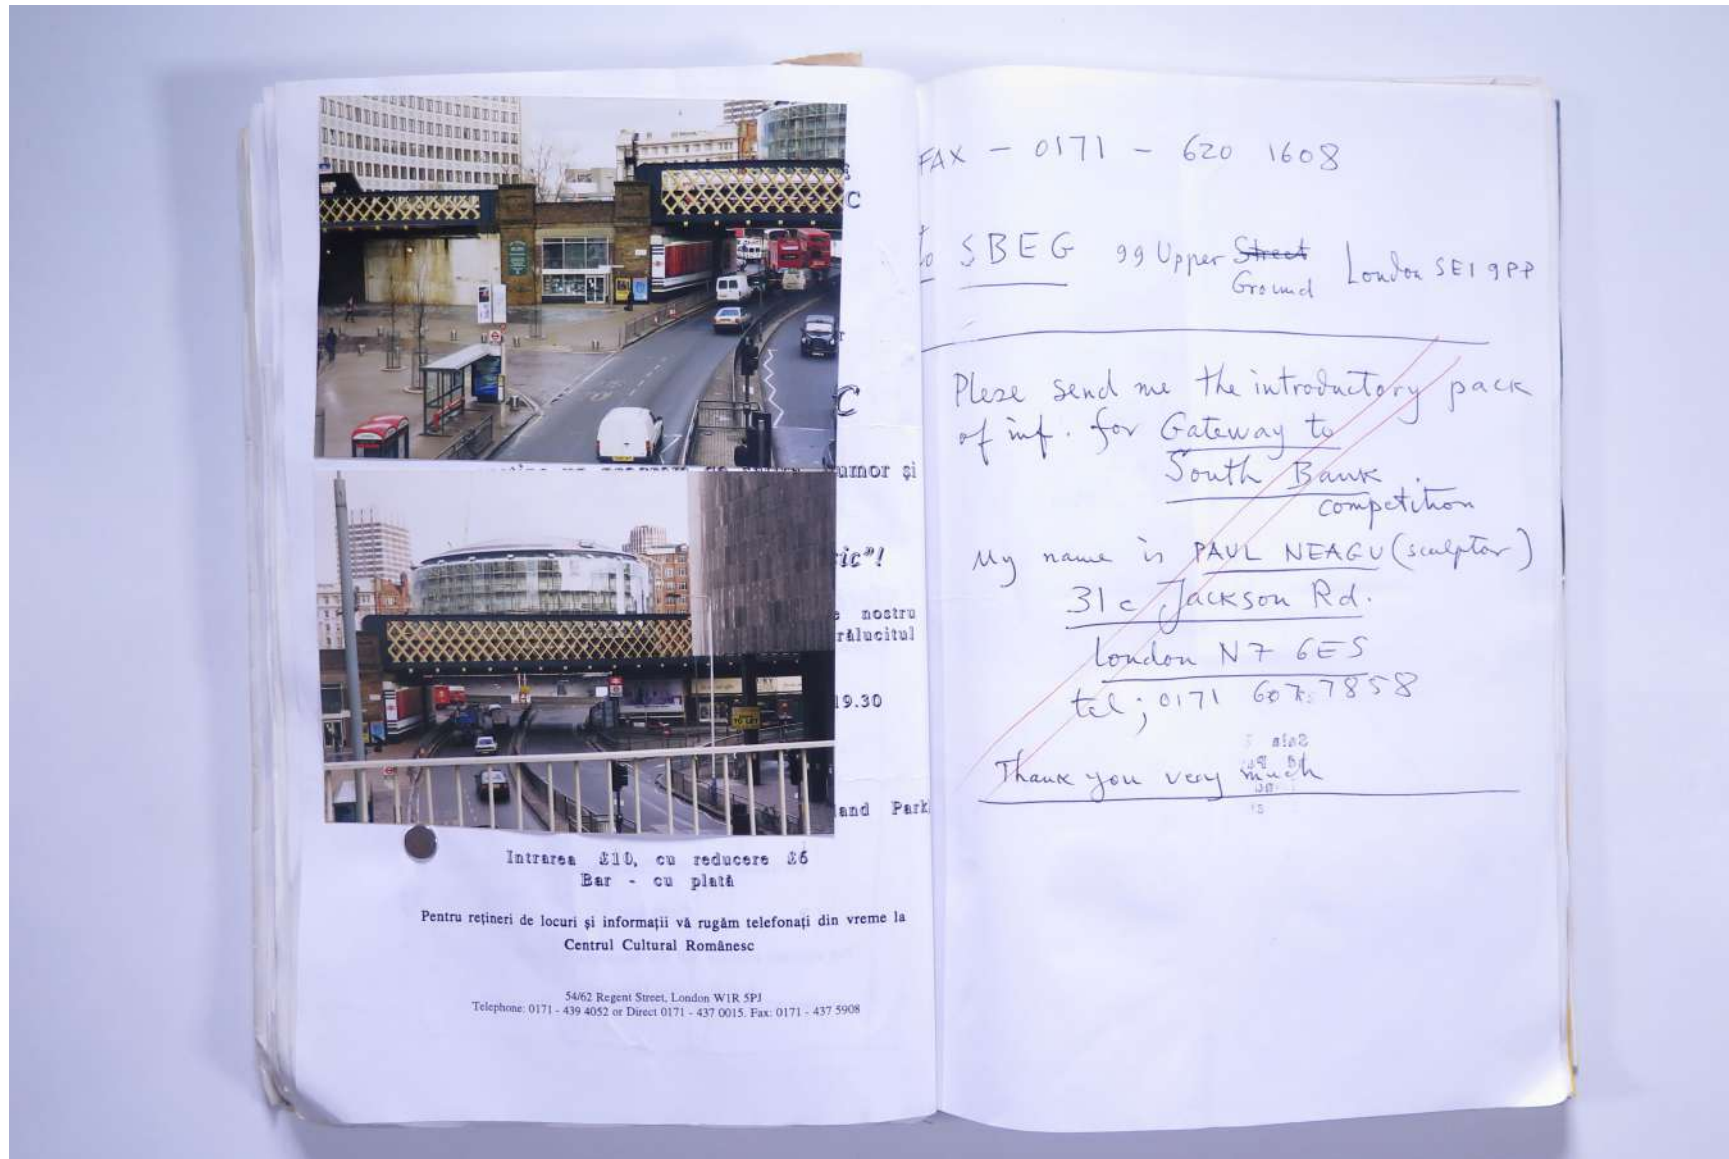 umor și
ic"!
nostru
rălucitul
19.30
and Park
Intrarea £10, cu reducere £6
Bar - cu plată
Pentru rețineri de locuri și informații vă rugăm telefonați din vreme la
Centrul Cultural Românesc
54/62 Regent Street, London W1R 5PJ
Telephone: 0171 - 439 4052 or Direct 0171 - 437 0015. Fax: 0171 - 437 5908
FAX - 0171 - 620 1608
to SBEG 99 Upper Street London SE1 9PP
Ground
Pleze send me the introductory pack
of inf. for Gateway to
South Bank.
competition
My name is PAUL NEAGU (sculptor)
31c Jackson Rd.
London N7 6ES
tel; 0171 607 7858
Thank you very much